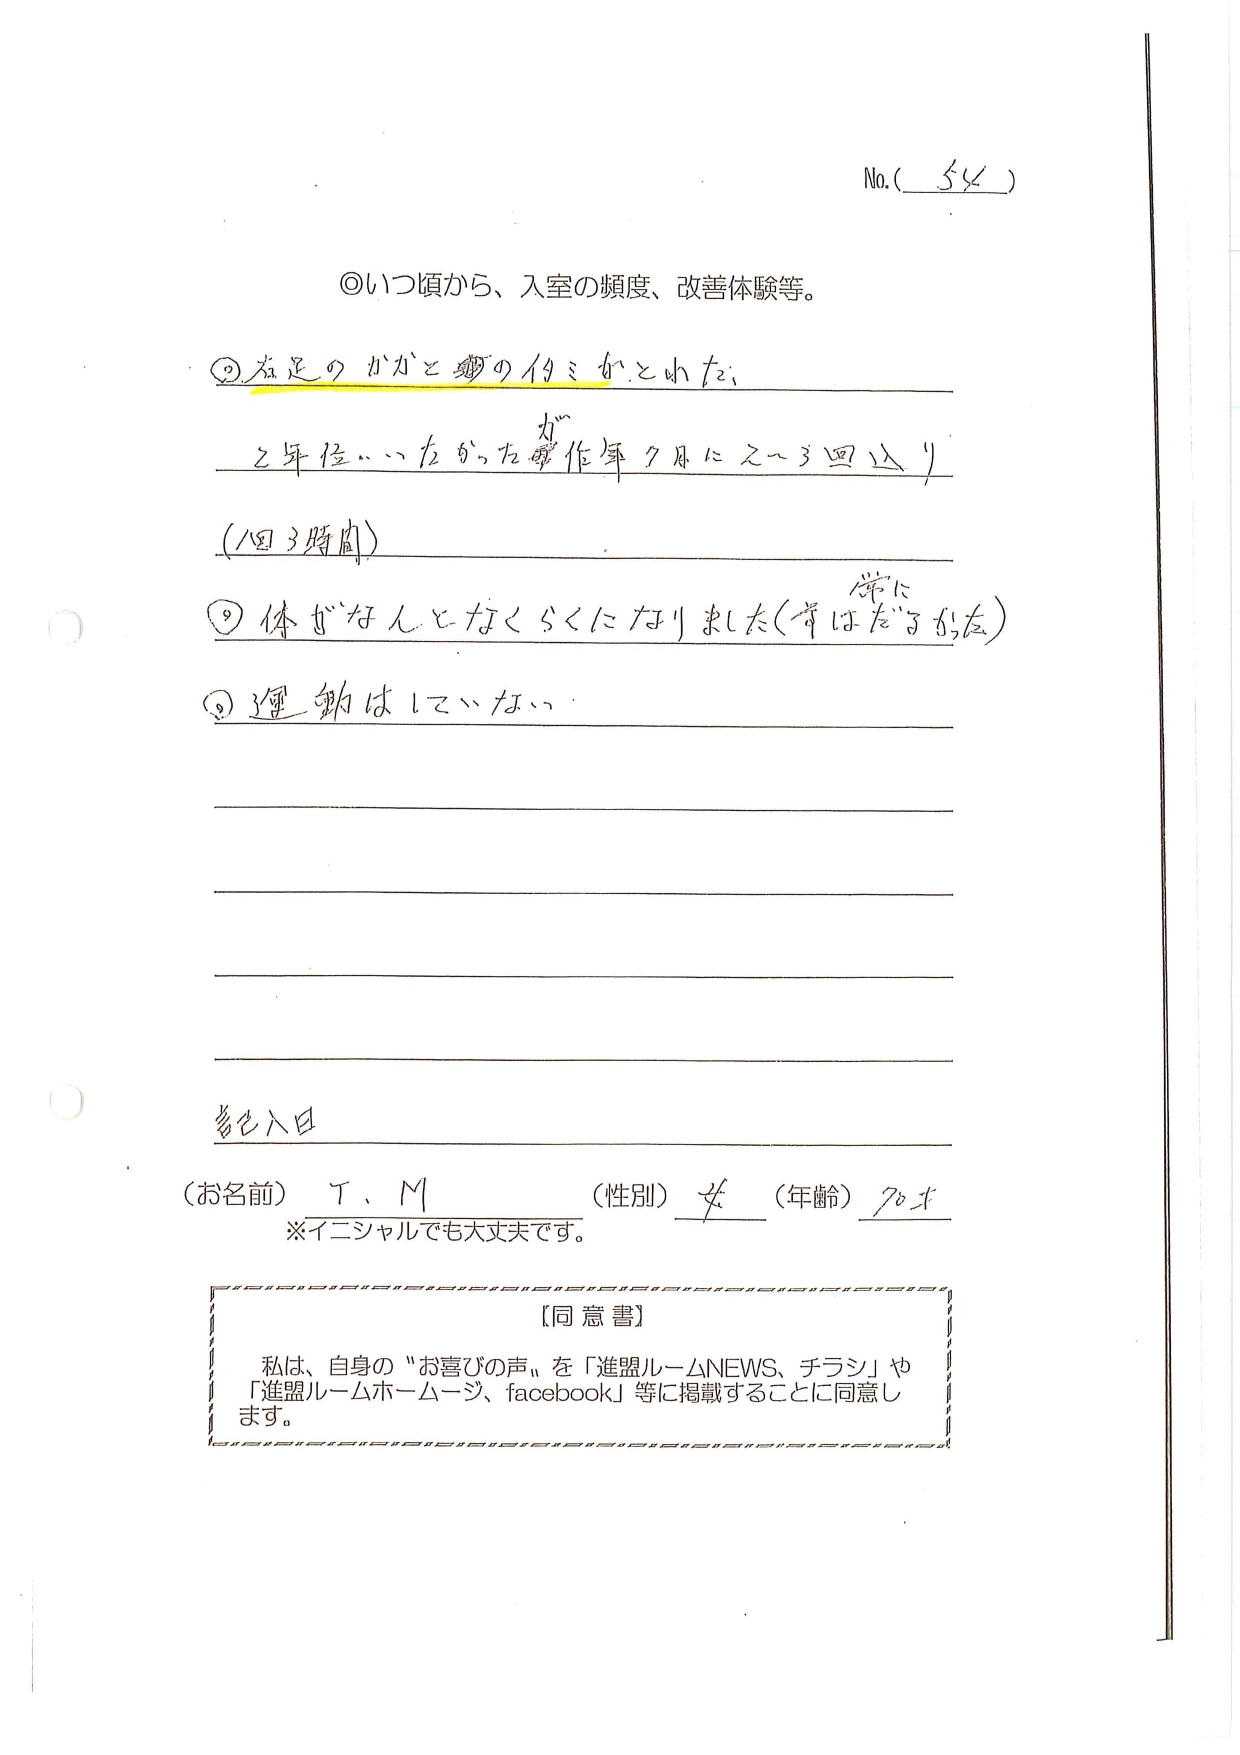 No.( 54 )
◎いつ頃から、入室の頻度、改善体験等。
◎右足のかかとのイタミがとれた。
2年位いたかったが作年7月に2〜3回込り
(1回3時間)
◎体がなんとなくらくになりました(昔は常にだるかった)
◎運動はしていない
記入日
(お名前) T.M (性別) 女 (年齢) 70才
※イニシャルでも大丈夫です。
【同意書】
私は、自身の〝お喜びの声〟を「進盟ルームNEWS、チラシ」や
「進盟ルームホームージ、facebook」等に掲載することに同意し
ます。